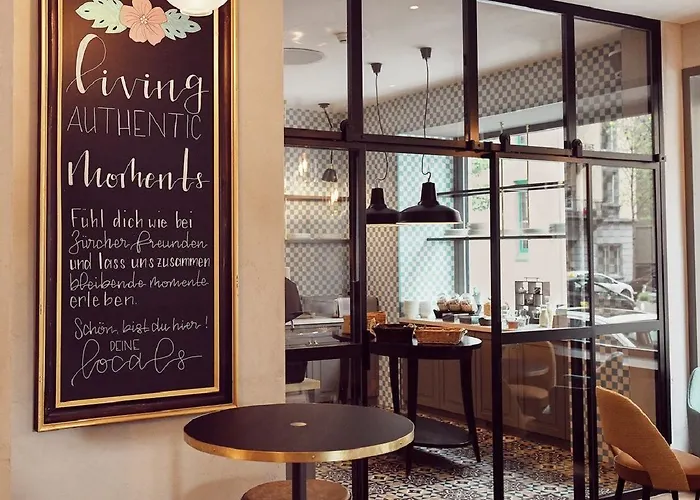 living
AUTHENTIC
Moments
Fühl dich wie bei
Zürcher Freunden
und lass uns zusammen
bleibende momente
erleben.
Schön, bist du hier!
DEINE
locals